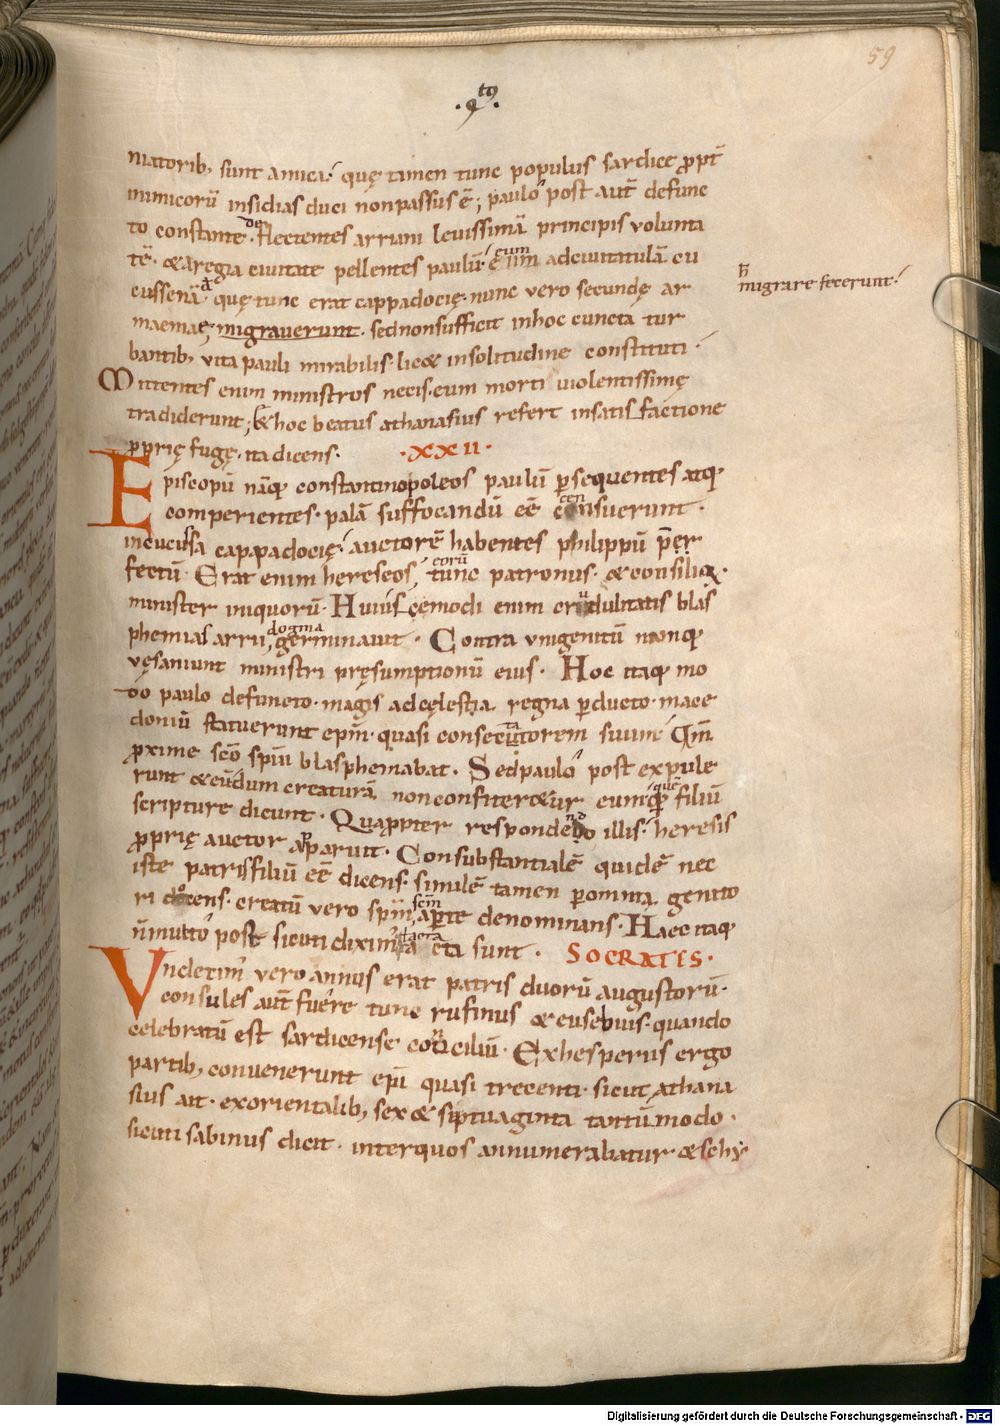 59
.qto.
niatorib; sunt amica. quę tamen tunc populus sardice ꝓpt̄
inimicorū insidias duci non passus ē; paulo post aut̄ defunc
to constante. deflectentes arriani leuissimā principis volunta
tē. & a regia ciuitate pellentes paulū. cum ad ciuitatulā cu
cussenā. quę tunc erat cappadocię. nunc vero secundę ar
maemaę migrauerunt. sed non sufficit in hoc cuncta tur
migrare fecerunt.
bantib; vita pauli mirabilis. lic& in solitudine constituti.
Mittentes enim ministros necis. eum morti uiolentissimę
tradiderunt; & hoc beatus athanasius refert in satisfactione
ꝓprię fugę. ita dicens. .XXII.
Episcopū nāq; constantinopoleos paulū ꝑsequentes atq;
comperientes. palā suffocandū eē censuerunt.
in cucusa cappadocię. auctorē habentes philippū p̄er
fectū. Erat enim hereseos eorū tunc patronus. & consilioꝝ
minister iniquorū. Huiuscemodi enim crudulitatis blas
phemias arrii dogma germinauit. Contra unigenitū nanq;
vęsaniunt ministri pręsumptionū eius. Hoc itaq; mo
do paulo defuncto. magis ad cęlestia regna ꝑducto. mace
doniū statuerunt ep̄m. quasi consectatorem suum. Qm̄
ꝓxime sc̄o sp̄iu blasphemabat. Sed paulo post expule
runt & eundum creaturā non confiter&ur eum quē filiū
scripture dicunt. Quapropter respondendo illis. heresis
ꝓprię auctor apparuit. Consubstantialē quidē nec
iste patris filiū eē dicens. similē tamen ꝑ omnia genito
ri docens. creatū vero sp̄m sc̄m aperte denominans. Haec itaq;
ñ multo post sicuti diximus facta sunt. SOCRATIS.
Vndecim vero annus erat patris duorū augustorū.
consules aut̄ fuere tunc rufinus & eusebius. quando
celebratū est sardicense concilium. Ex hesperiis ergo
partib; conuenerunt ep̄i quasi trecenti. sicut athana
sius ait. ex orientalib; sex & siptuaginta tantūmodo.
sicuti sabinus dicit. inter quos annumerabatur & schy
Digitalisierung gefördert durch die Deutsche Forschungsgemeinschaft - DFG